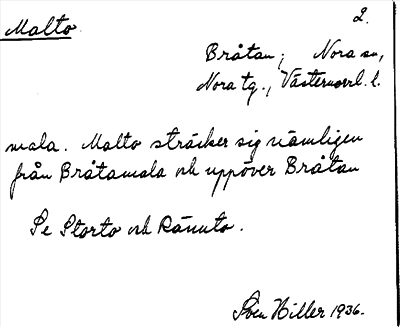 Malto
2.
Bråtan; Nora sn,
Nora tg., Västernorrl. l.
mala. Malto sträcker sig nämligen
från Bråtamala och uppöver Bråtan
Se Storto och Rännto.
Sven Hiller 1936.